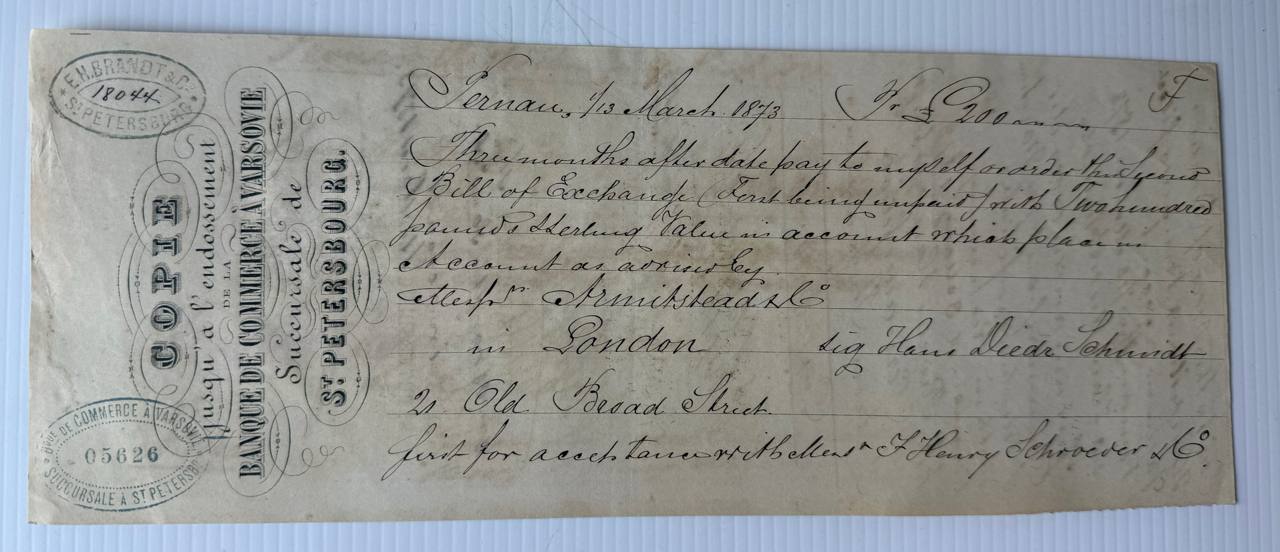 E.H. BRANDT & Co
18044
ST PETERSBURG
COPIE
Jusqu'à l'endossement
DE LA
BANQUE DE COMMERCE À VARSOVIE
Succursale de
ST. PETERSBOURG.
BQUE DE COMMERCE À VARSOVIE
05626
SUCCURSALE À ST PETERSBG
Pernau, 1/13 March 1873 Pr £ 200
Three months after date pay to myself or order this Second
Bill of Exchange (First being unpaid) with Two hundred
pounds Sterling Value in account which place in
Account as advised by
Messrs Armitstead & Co
in London sig Hans Diedr Schmidt
21 Old Broad Street.
first for acceptance with Messrs J Henry Schroeder & Co.